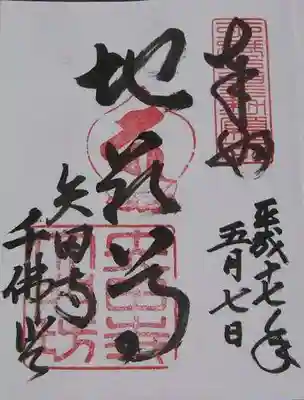 奉拝
平成十七年
五月七日
地蔵尊
矢田寺
千佛堂